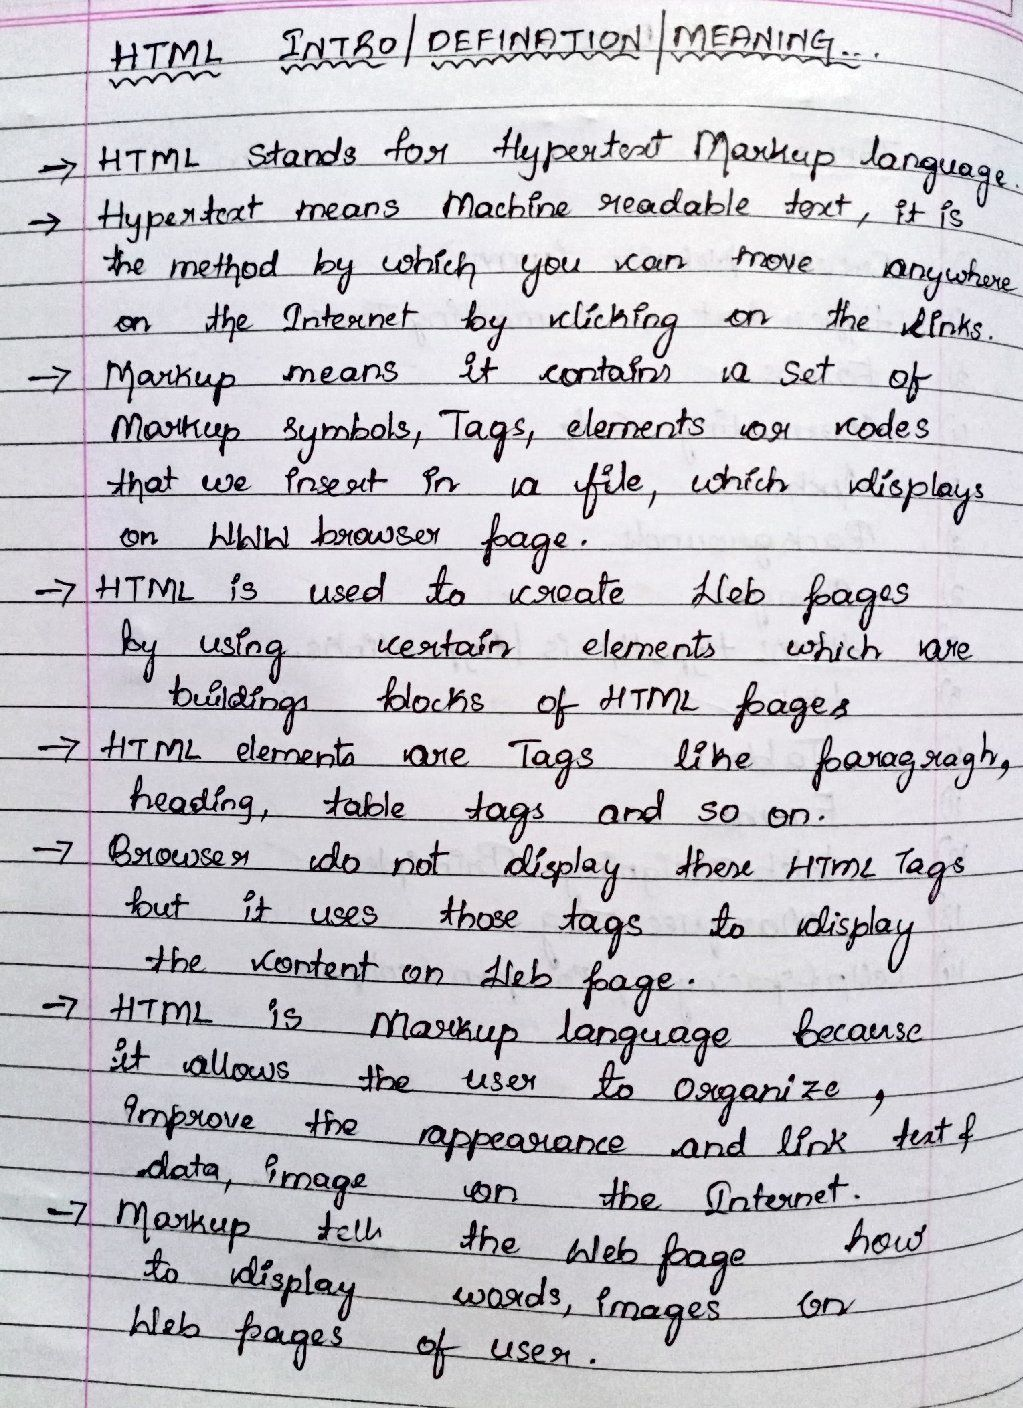 HTML INTRO/DEFINATION/MEANING...
→ HTML stands for Hypertext Markup language.
→ Hypertext means Machine readable text, it is
the method by which you can move anywhere
on the Internet by clicking on the links.
→ Markup means it contains a set of
Markup symbols, Tags, elements or codes
that we insert in a file, which displays
on WWW browser page.
→ HTML is used to create Web pages
by using certain elements which are
buildings blocks of HTML pages
→ HTML elements are Tags like paragragh,
heading, table tags and so on.
→ Browser do not display these HTML Tags
but it uses those tags to display
the content on Web page.
→ HTML is Markup language because
it allows the user to organize,
improve the appearance and link text &
data, image on the Internet.
→ Markup tells the Web page how
to display words, images on
Web pages of user.